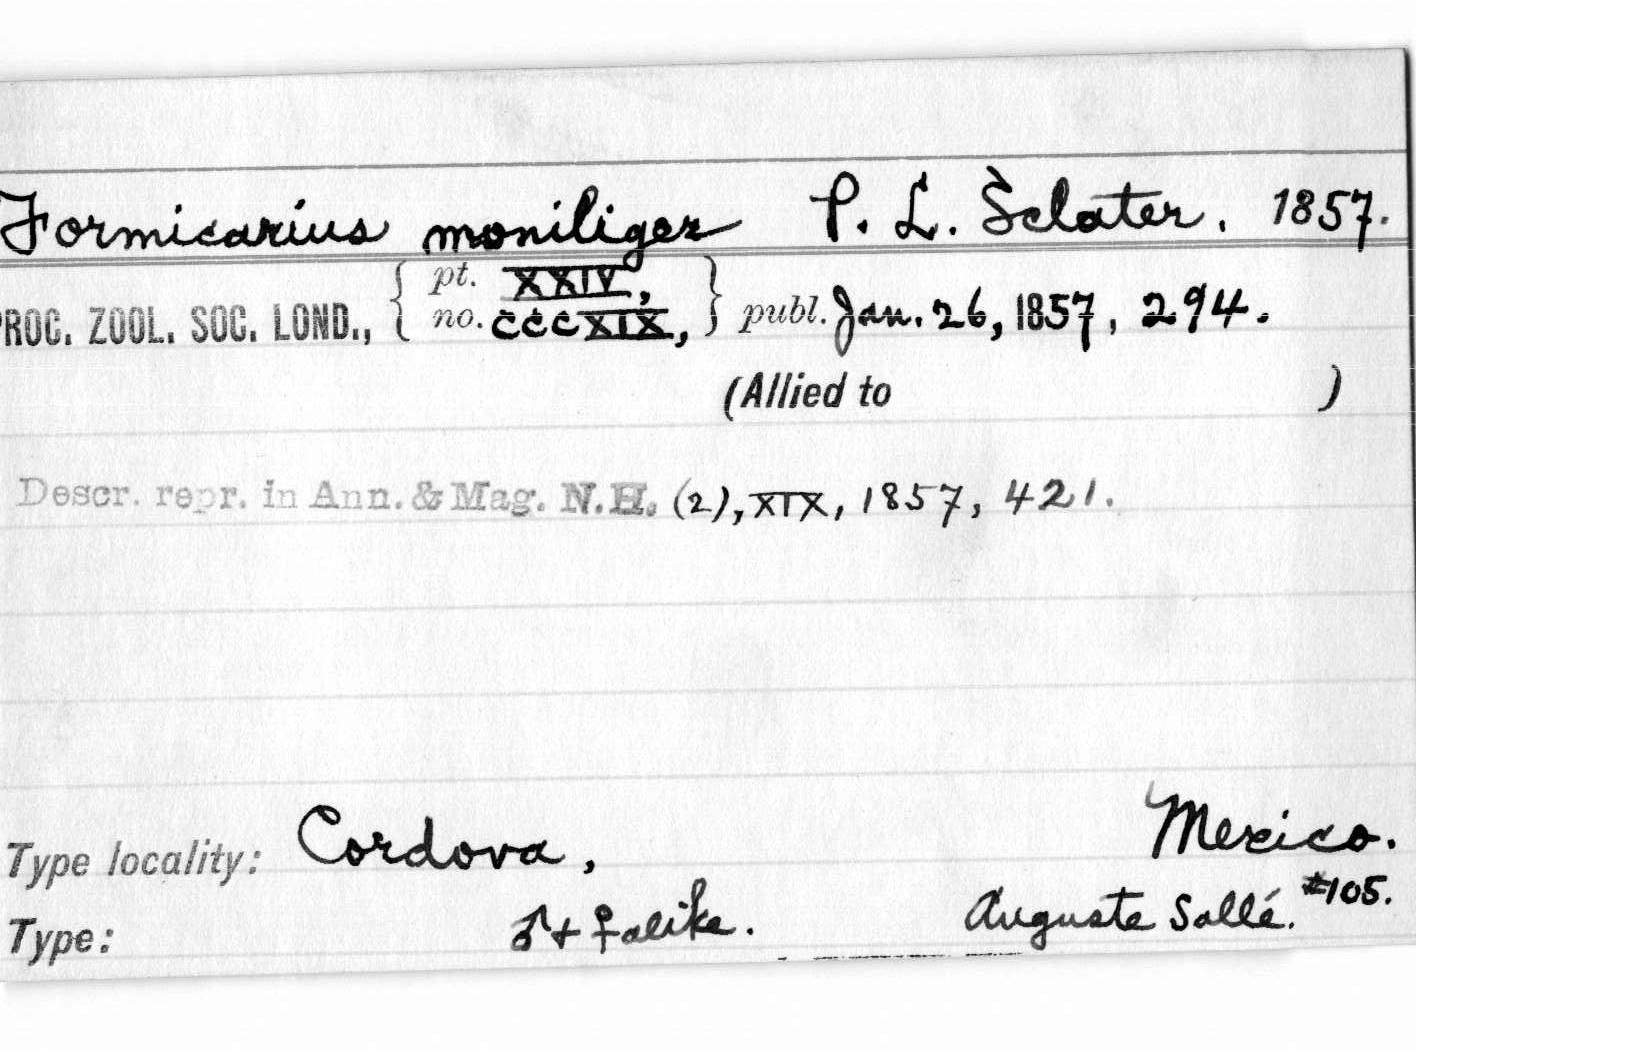 Formicarius moniliger P. L. Sclater. 1857.
PROC. ZOOL. SOC. LOND., { pt. XXIV, no. CCCXIX, } publ. Jan. 26, 1857, 294.
(Allied to )
Descr. repr. in Ann. & Mag. N.H. (2), XIX, 1857, 421.
Type locality: Cordova, Mexico.
Type: ♂ + ♀ alike. Auguste Sallé. #105.